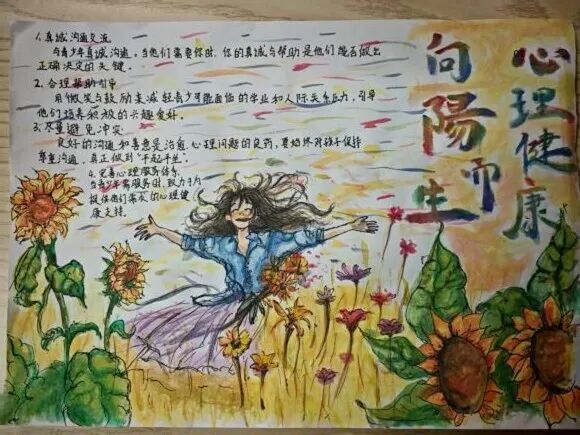 心理健康
向陽而生
1.真诚沟通交流
与青少年真诚沟通。当他们需要你时,你的真诚与帮助是他们能否做出
正确决定的关键。
2.合理帮助引导
用微笑与鼓励来减轻青少年可能面临的学业和人际关系压力,引导
他们培养积极的兴趣爱好。
3.尽量避免冲突
良好的沟通和善意是治愈心理问题的良药,要始终对孩子保持
尊重沟通,真正做到“平起平坐”。
4.完善心理服务体系
当青少年需服务时,致力于为
提供他们需求的心理健
康支持。